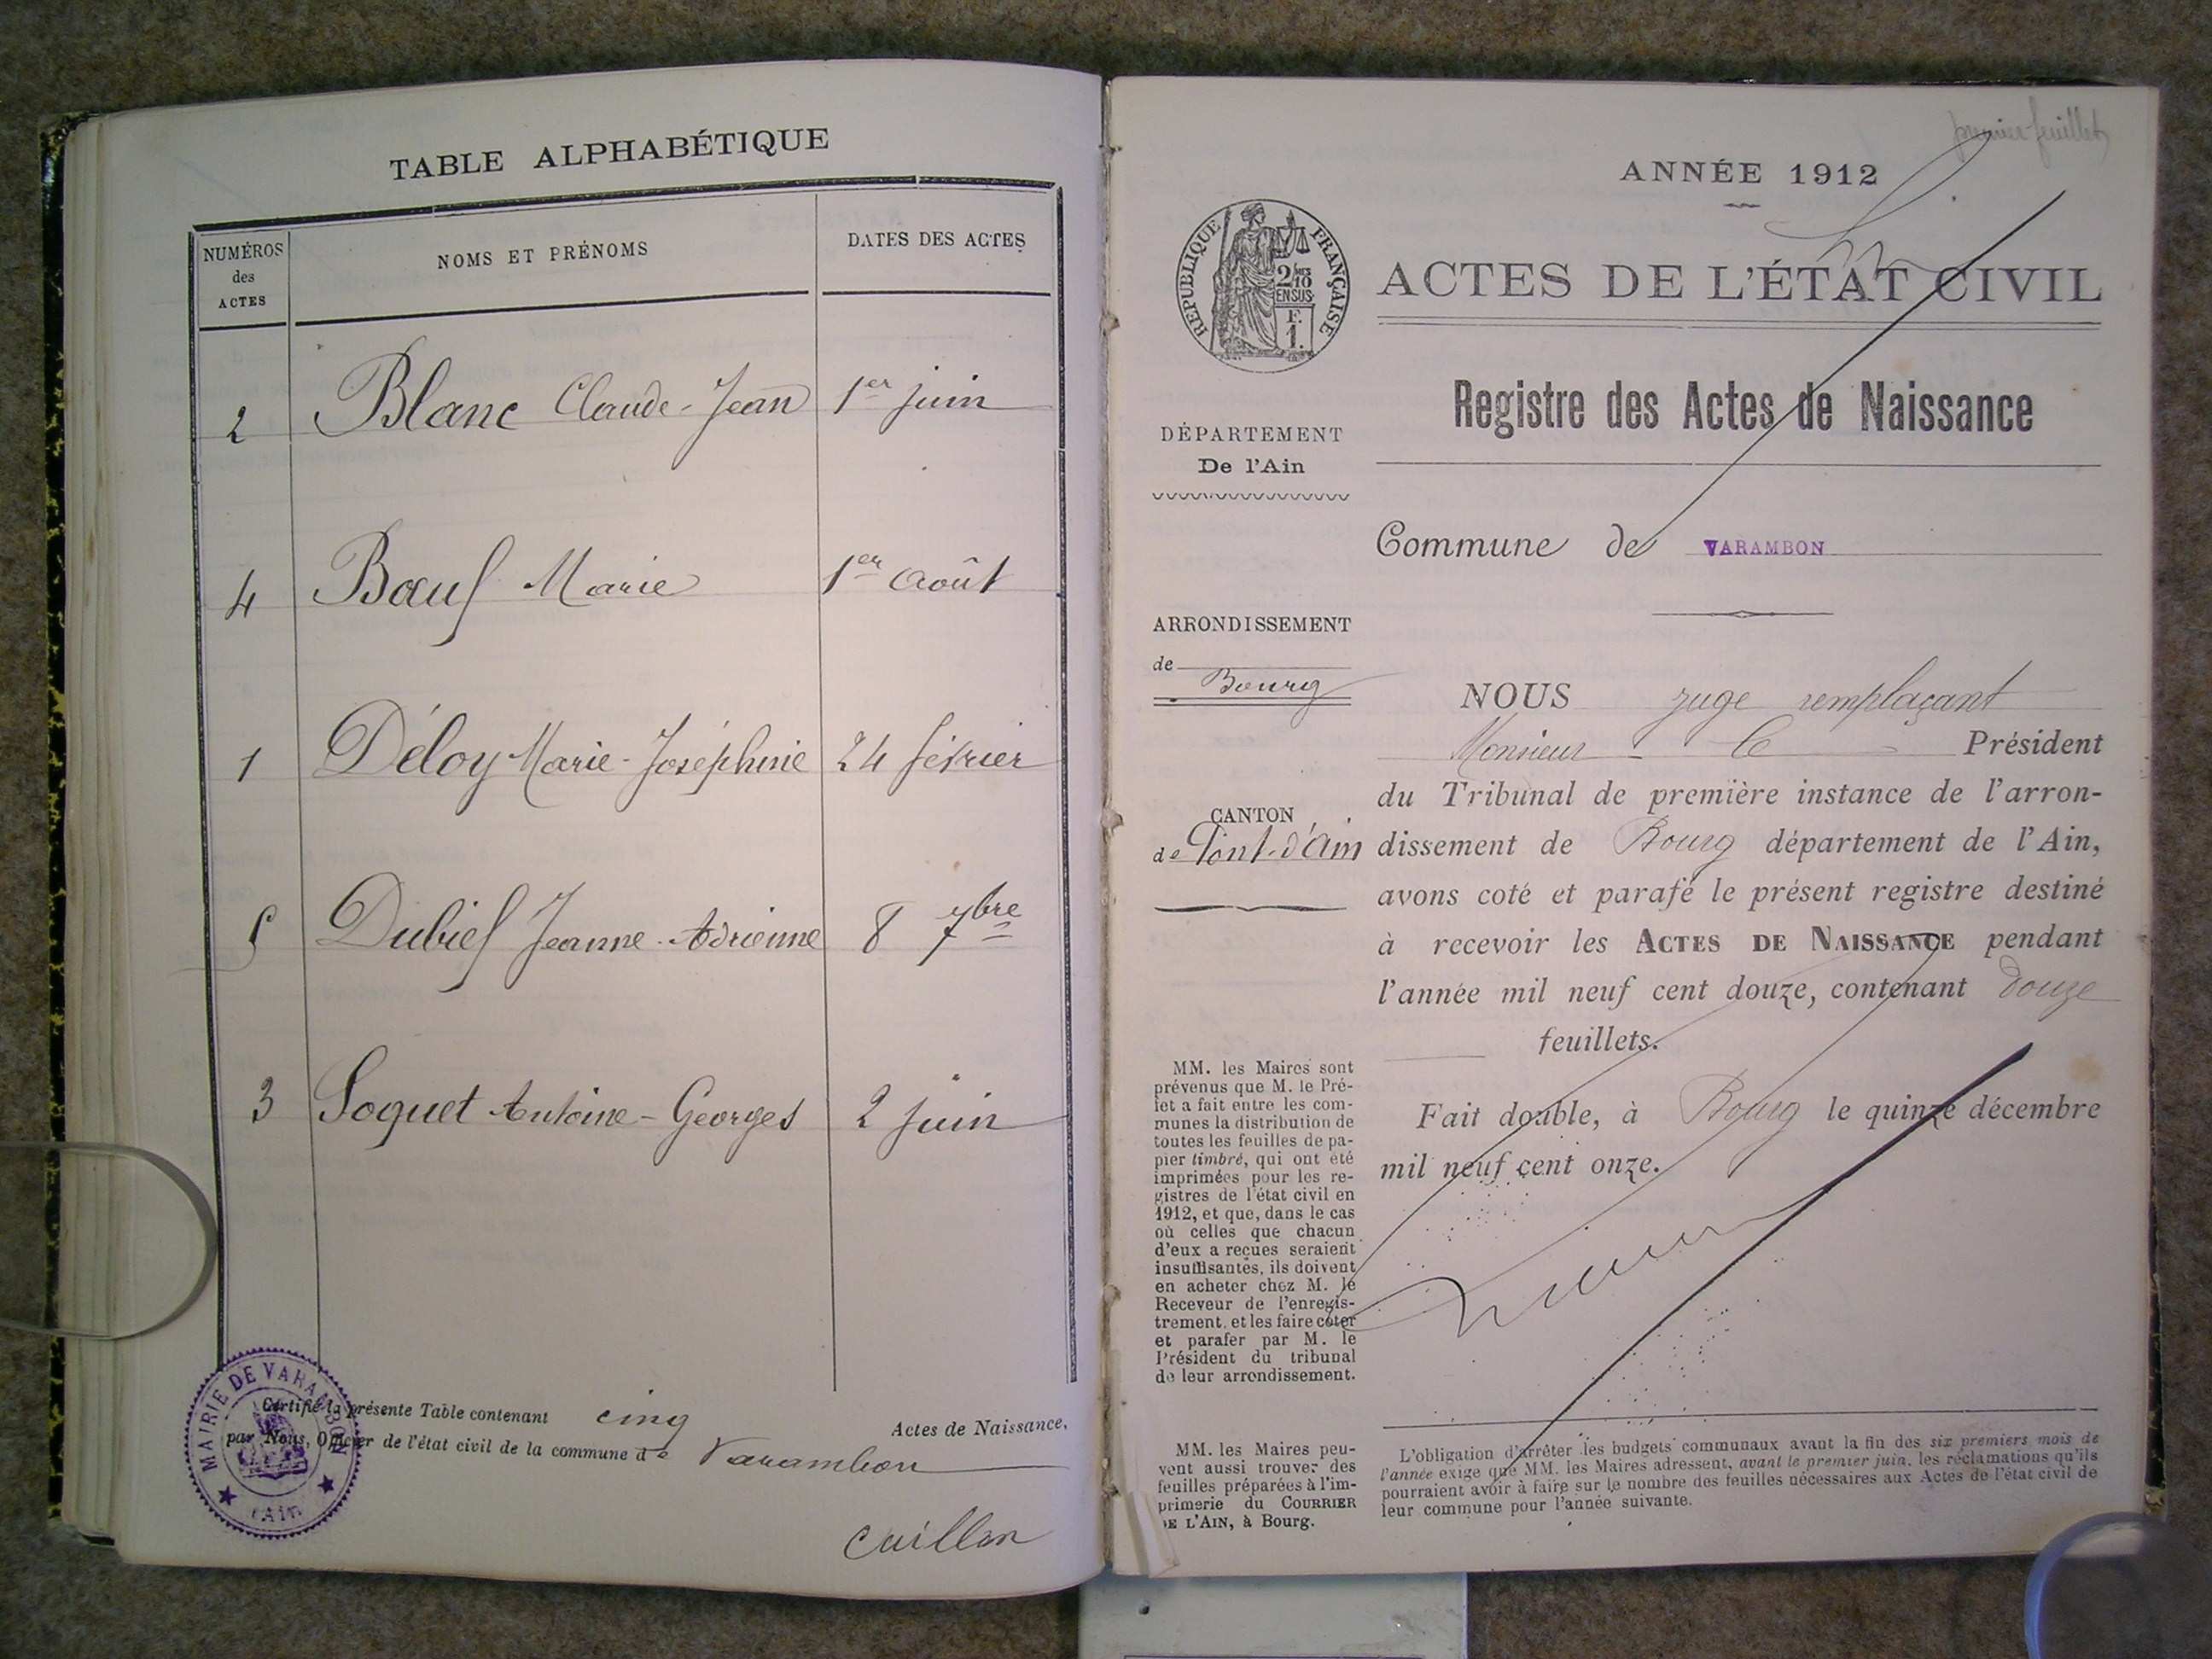 TABLE ALPHABÉTIQUE
NUMÉROS
des
ACTES
NOMS ET PRÉNOMS
DATES DES ACTES
2 Blanc Claude-Jean 1er juin
4 Bœuf Marie 1er Août
1 Déloy Marie-Joséphine 24 février
5 Dubief Jeanne-Adrienne 8 7bre
3 Soquet Antoine-Georges 2 juin
Certifié la présente Table contenant cinq Actes de Naissance,
par Nous, Officier de l'état civil de la commune de Varambon
MAIRIE DE VARAMBON
(AIN)
Cuillon
premier feuillet
ANNÉE 1912
RÉPUBLIQUE FRANÇAISE
2/10
EN SUS
F.
1.
ACTES DE L'ÉTAT CIVIL
Registre des Actes de Naissance
DÉPARTEMENT
De l'Ain
Commune de VARAMBON
ARRONDISSEMENT
de Bourg
CANTON
de Pont-d'Ain
NOUS juge remplaçant
Monsieur le Président
du Tribunal de première instance de l'arron-
dissement de Bourg département de l'Ain,
avons coté et parafé le présent registre destiné
à recevoir les ACTES DE NAISSANCE pendant
l'année mil neuf cent douze, contenant douze
feuillets.
Fait double, à Bourg le quinze décembre
mil neuf cent onze.
MM. les Maires sont
prévenus que M. le Pré-
fet a fait entre les com-
munes la distribution de
toutes les feuilles de pa-
pier timbré, qui ont été
imprimées pour les re-
gistres de l'état civil en
1912, et que, dans le cas
où celles que chacun
d'eux a reçues seraient
insuffisantes, ils doivent
en acheter chez M. le
Receveur de l'enregis-
trement, et les faire coter
et parafer par M. le
Président du tribunal
de leur arrondissement.
MM. les Maires peu-
vent aussi trouver des
feuilles préparées à l'im-
primerie du COURRIER
DE L'AIN, à Bourg.
L'obligation d'arrêter les budgets communaux avant la fin des six premiers mois de
l'année exige que MM. les Maires adressent, avant le premier juin, les réclamations qu'ils
pourraient avoir à faire sur le nombre des feuilles nécessaires aux Actes de l'état civil de
leur commune pour l'année suivante.